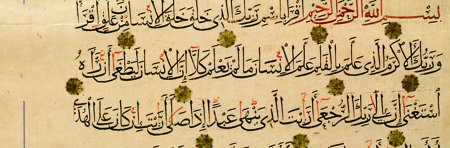 بسم الله الرحمن الرحيم اقرأ باسم ربك الذي خلق خلق الإنسان من علق اقرأ
وربك الأكرم الذي علم بالقلم علم الإنسان ما لم يعلم كلا إن الإنسان ليطغى أن رآه
استغنى إن إلى ربك الرجعى أرأيت الذي ينهى عبدا إذا صلى أرأيت إن كان على الهدى